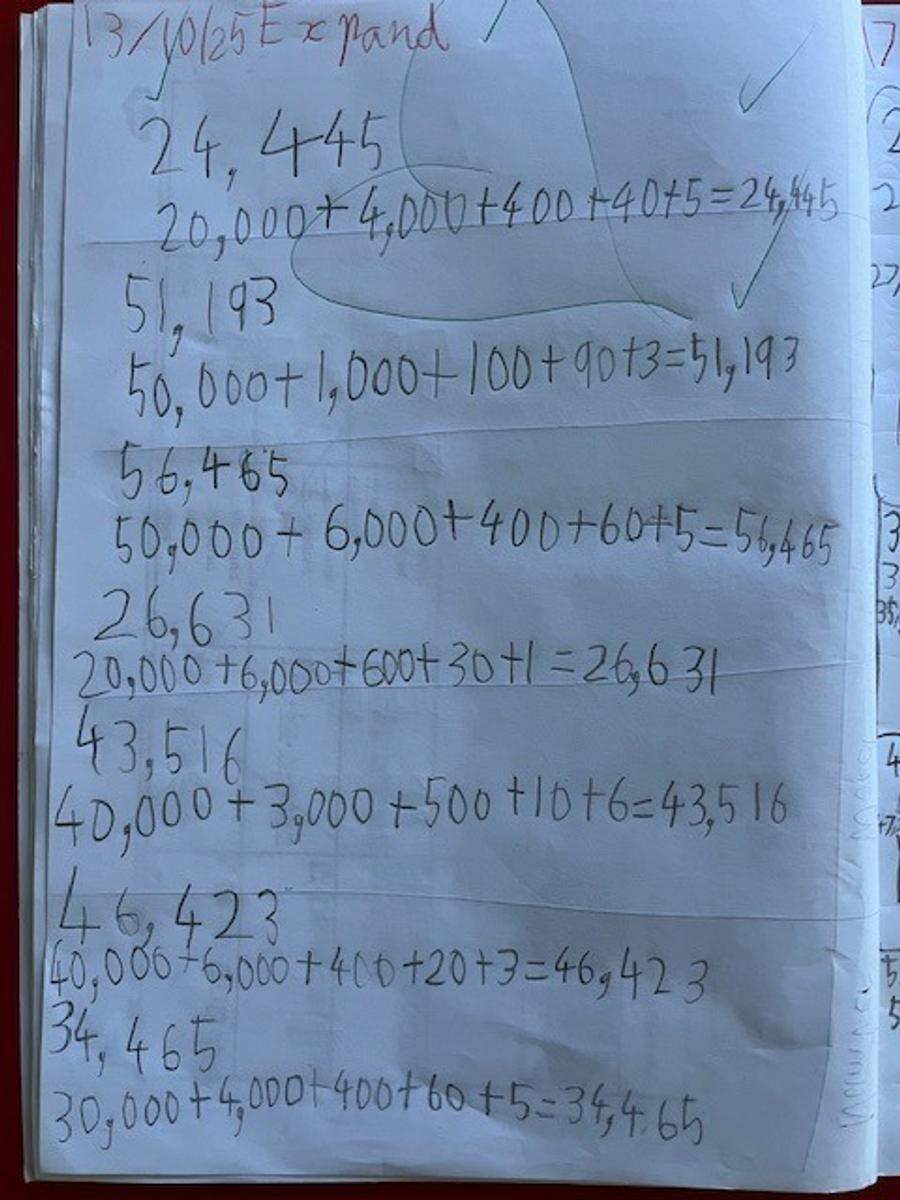 13/10/25 Expand
24,445
20,000+4,000+400+40+5=24,445
51,193
50,000+1,000+100+90+3=51,193
56,465
50,000+6,000+400+60+5=56,465
26,631
20,000+6,000+600+30+1=26,631
43,516
40,000+3,000+500+10+6=43,516
46,423
40,000+6,000+400+20+3=46,423
34,465
30,000+4,000+400+60+5=34,465